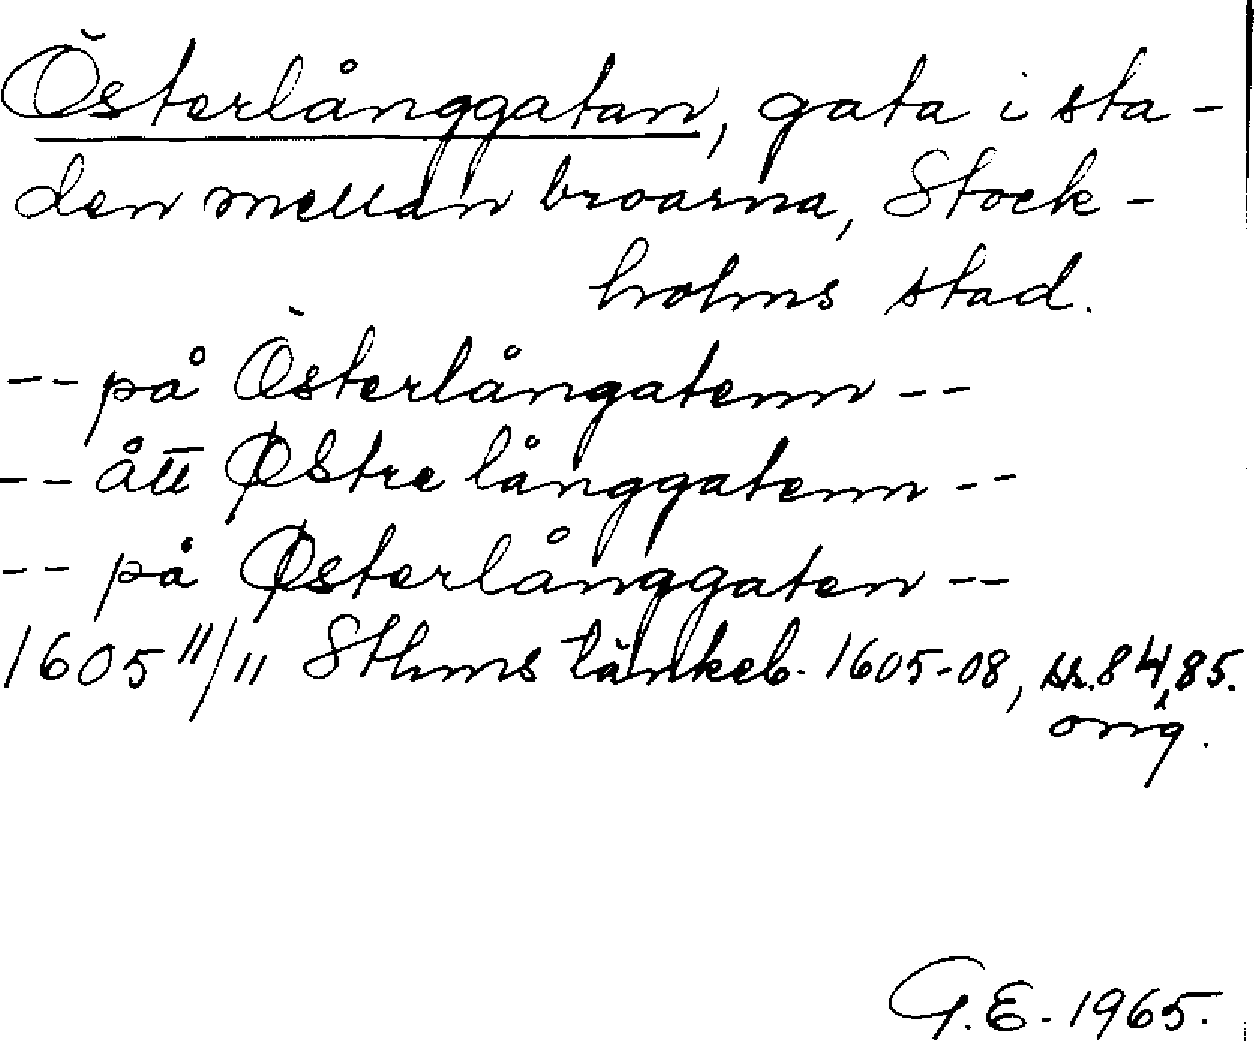 Österlånggatan, gata i sta-
den mellan broarna, Stock-
holms stad.
-- på Österlångatenn --
-- ått Østre långgatenn --
-- på Østerlånggaten --
1605 11/11 Sthms tänkeb. 1605-08, s. 84, 85.
orig.
G.E. 1965.